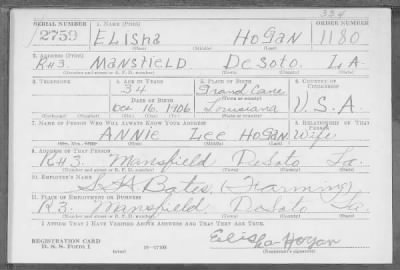 334
SERIAL NUMBER 1. NAME (Print) ORDER NUMBER
2759 ELisha HoGan 1180
(First) (Middle) (Last)
2. ADDRESS (Print)
R#3 MansfIeld DeSoto. LA.
(Number and street or R. F. D. number) (Town) (County) (State)
3. TELEPHONE 4. AGE IN YEARS 5. PLACE OF BIRTH 6. COUNTRY OF CITIZENSHIP
34 Grand Cane
(Town or county)
DATE OF BIRTH
Dec 16, 1906. Louisiana U.S.A.
(Exchange) (Number) (Mo.) (Day) (Yr.) (State or country)
7. NAME OF PERSON WHO WILL ALWAYS KNOW YOUR ADDRESS 8. RELATIONSHIP OF THAT PERSON
ANNIE Lee HoGan Wife
(Mr., Mrs., Miss) (First) (Middle) (Last)
9. ADDRESS OF THAT PERSON
R#3. Mansfield DeSoto La.
(Number and street or R. F. D. number) (Town) (County) (State)
10. EMPLOYER'S NAME
Bates, (Farming)
11. PLACE OF EMPLOYMENT OR BUSINESS
R3. Mansfield. DeSoto La.
(Number and street or R. F. D. number) (Town) (County) (State)
I AFFIRM THAT I HAVE VERIFIED ABOVE ANSWERS AND THAT THEY ARE TRUE.
REGISTRATION CARD
D. S. S. Form 1 (over) Elisha Hogan
(Registrant's signature)